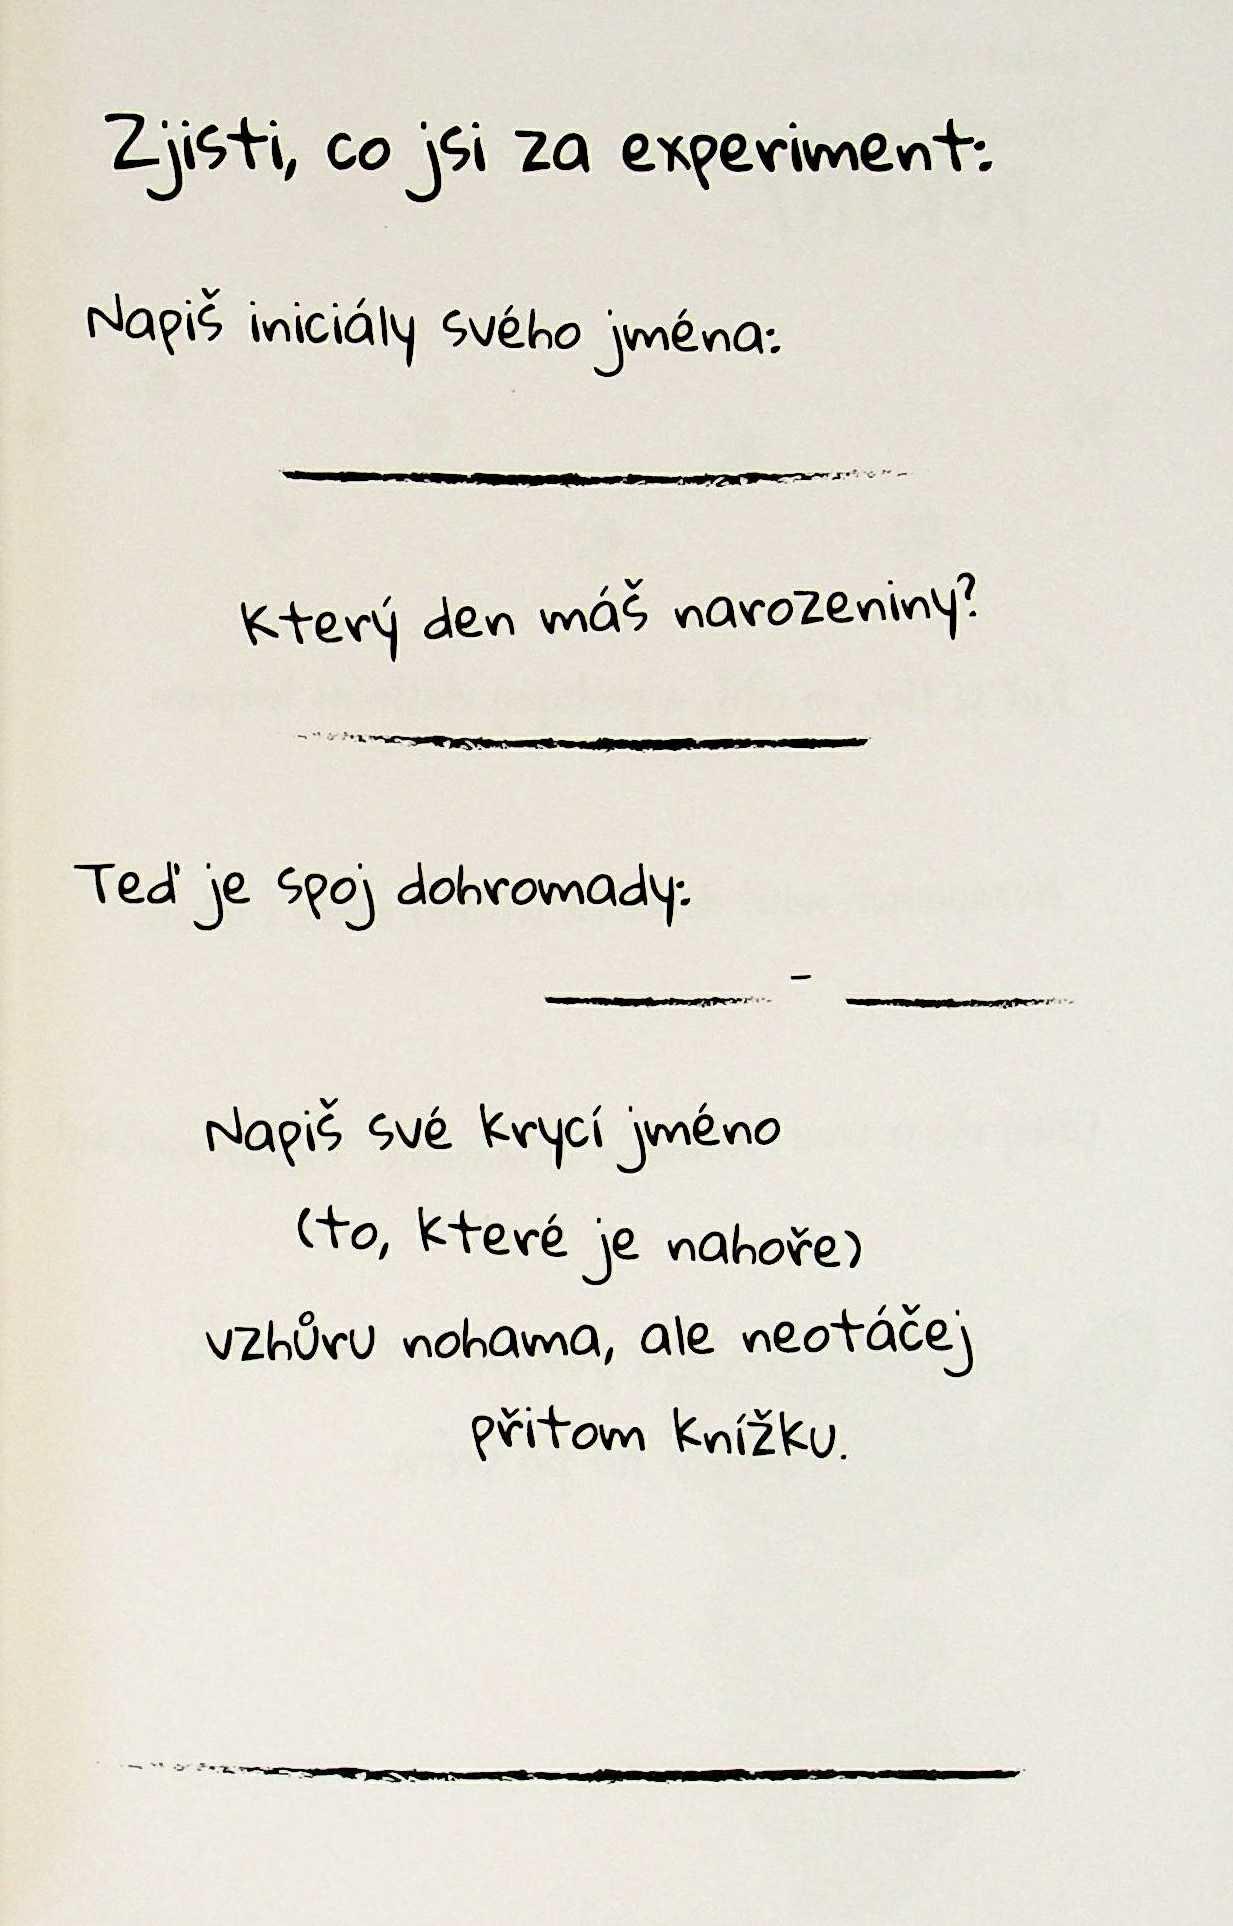 Zjisti, co jsi za experiment:
Napiš iniciály svého jména:
Který den máš narozeniny?
Teď je spoj dohromady:
-
Napiš své krycí jméno
(to, které je nahoře)
vzhůru nohama, ale neotáčej
přitom knížku.